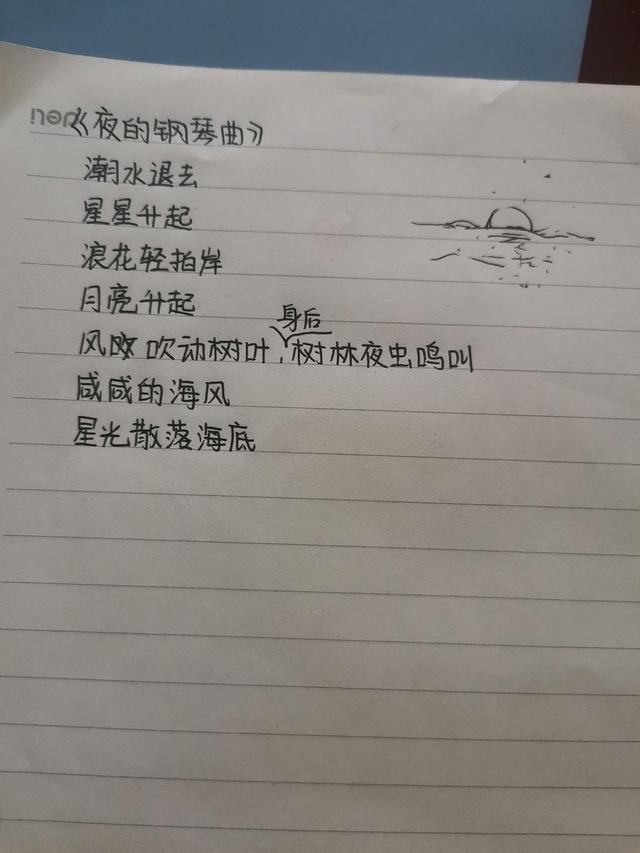 deli
《夜的钢琴曲》
潮水退去
星星升起
浪花轻拍岸
月亮升起
风吹动树叶，身后树林夜虫鸣叫
咸咸的海风
星光散落海底